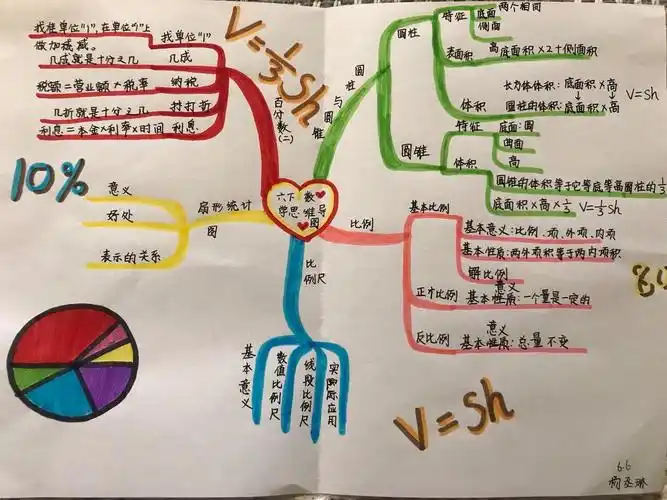 六下数
学思维导
图
百分数(二)
找准单位"1",在单位"1"上
做加减。
找单位"1"
几成就是十分之几
几成
税额=营业额×税率
纳税
几折就是十分之几
打折
利息=本金×利率×时间
利息
V=1/3Sh
圆柱与圆锥
圆柱
特征
两个相同
底面
侧面
高
表面积
底面积×2+侧面积
体积
长方体体积:底面积×高
↓ ↓
圆柱的体积:底面积×高
V=Sh
圆锥
特征
底面:圆
曲面
高
体积
圆锥的体积等于它等底等高圆柱的1/3
底面积×高×1/3 V=1/3Sh
10%
扇形统计
图
意义
好处
表示的关系
比例
基本比例
基本意义:比例、项、外项、内项
基本性质:两外项积等于两内项积
解比例
正才比例
意义
基本性质:一个量是一定的
反比例
意义
基本性质:总量不变
比例尺
基本意义
数值比例尺
线段比例尺
实际应用
V=Sh
6.6